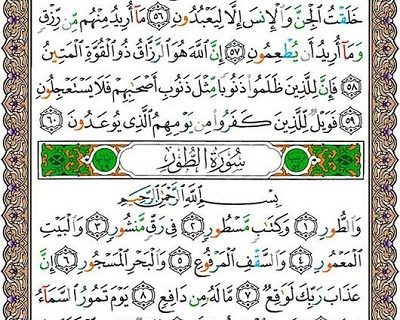 خَلَقْتُ ٱلْجِنَّ وَٱلْإِنسَ إِلَّا لِيَعْبُدُونِ ۝٥٦ مَآ أُرِيدُ مِنْهُم مِّن رِّزْقٍ
وَمَآ أُرِيدُ أَن يُطْعِمُونِ ۝٥٧ إِنَّ ٱللَّهَ هُوَ ٱلرَّزَّاقُ ذُو ٱلْقُوَّةِ ٱلْمَتِينُ
۝٥٨ فَإِنَّ لِلَّذِينَ ظَلَمُوا۟ ذَنُوبًا مِّثْلَ ذَنُوبِ أَصْحَٰبِهِمْ فَلَا يَسْتَعْجِلُونِ
۝٥٩ فَوَيْلٌ لِّلَّذِينَ كَفَرُوا۟ مِن يَوْمِهِمُ ٱلَّذِى يُوعَدُونَ ۝٦٠
سُورَةُ الطُّورِ
بِسْمِ ٱللَّهِ ٱلرَّحْمَٰنِ ٱلرَّحِيمِ
وَٱلطُّورِ ۝١ وَكِتَٰبٍ مَّسْطُورٍ ۝٢ فِى رَقٍّ مَّنشُورٍ ۝٣ وَٱلْبَيْتِ
ٱلْمَعْمُورِ ۝٤ وَٱلسَّقْفِ ٱلْمَرْفُوعِ ۝٥ وَٱلْبَحْرِ ٱلْمَسْجُورِ ۝٦ إِنَّ
عَذَابَ رَبِّكَ لَوَٰقِعٌ ۝٧ مَّا لَهُۥ مِن دَافِعٍ ۝٨ يَوْمَ تَمُورُ ٱلسَّمَآءُ